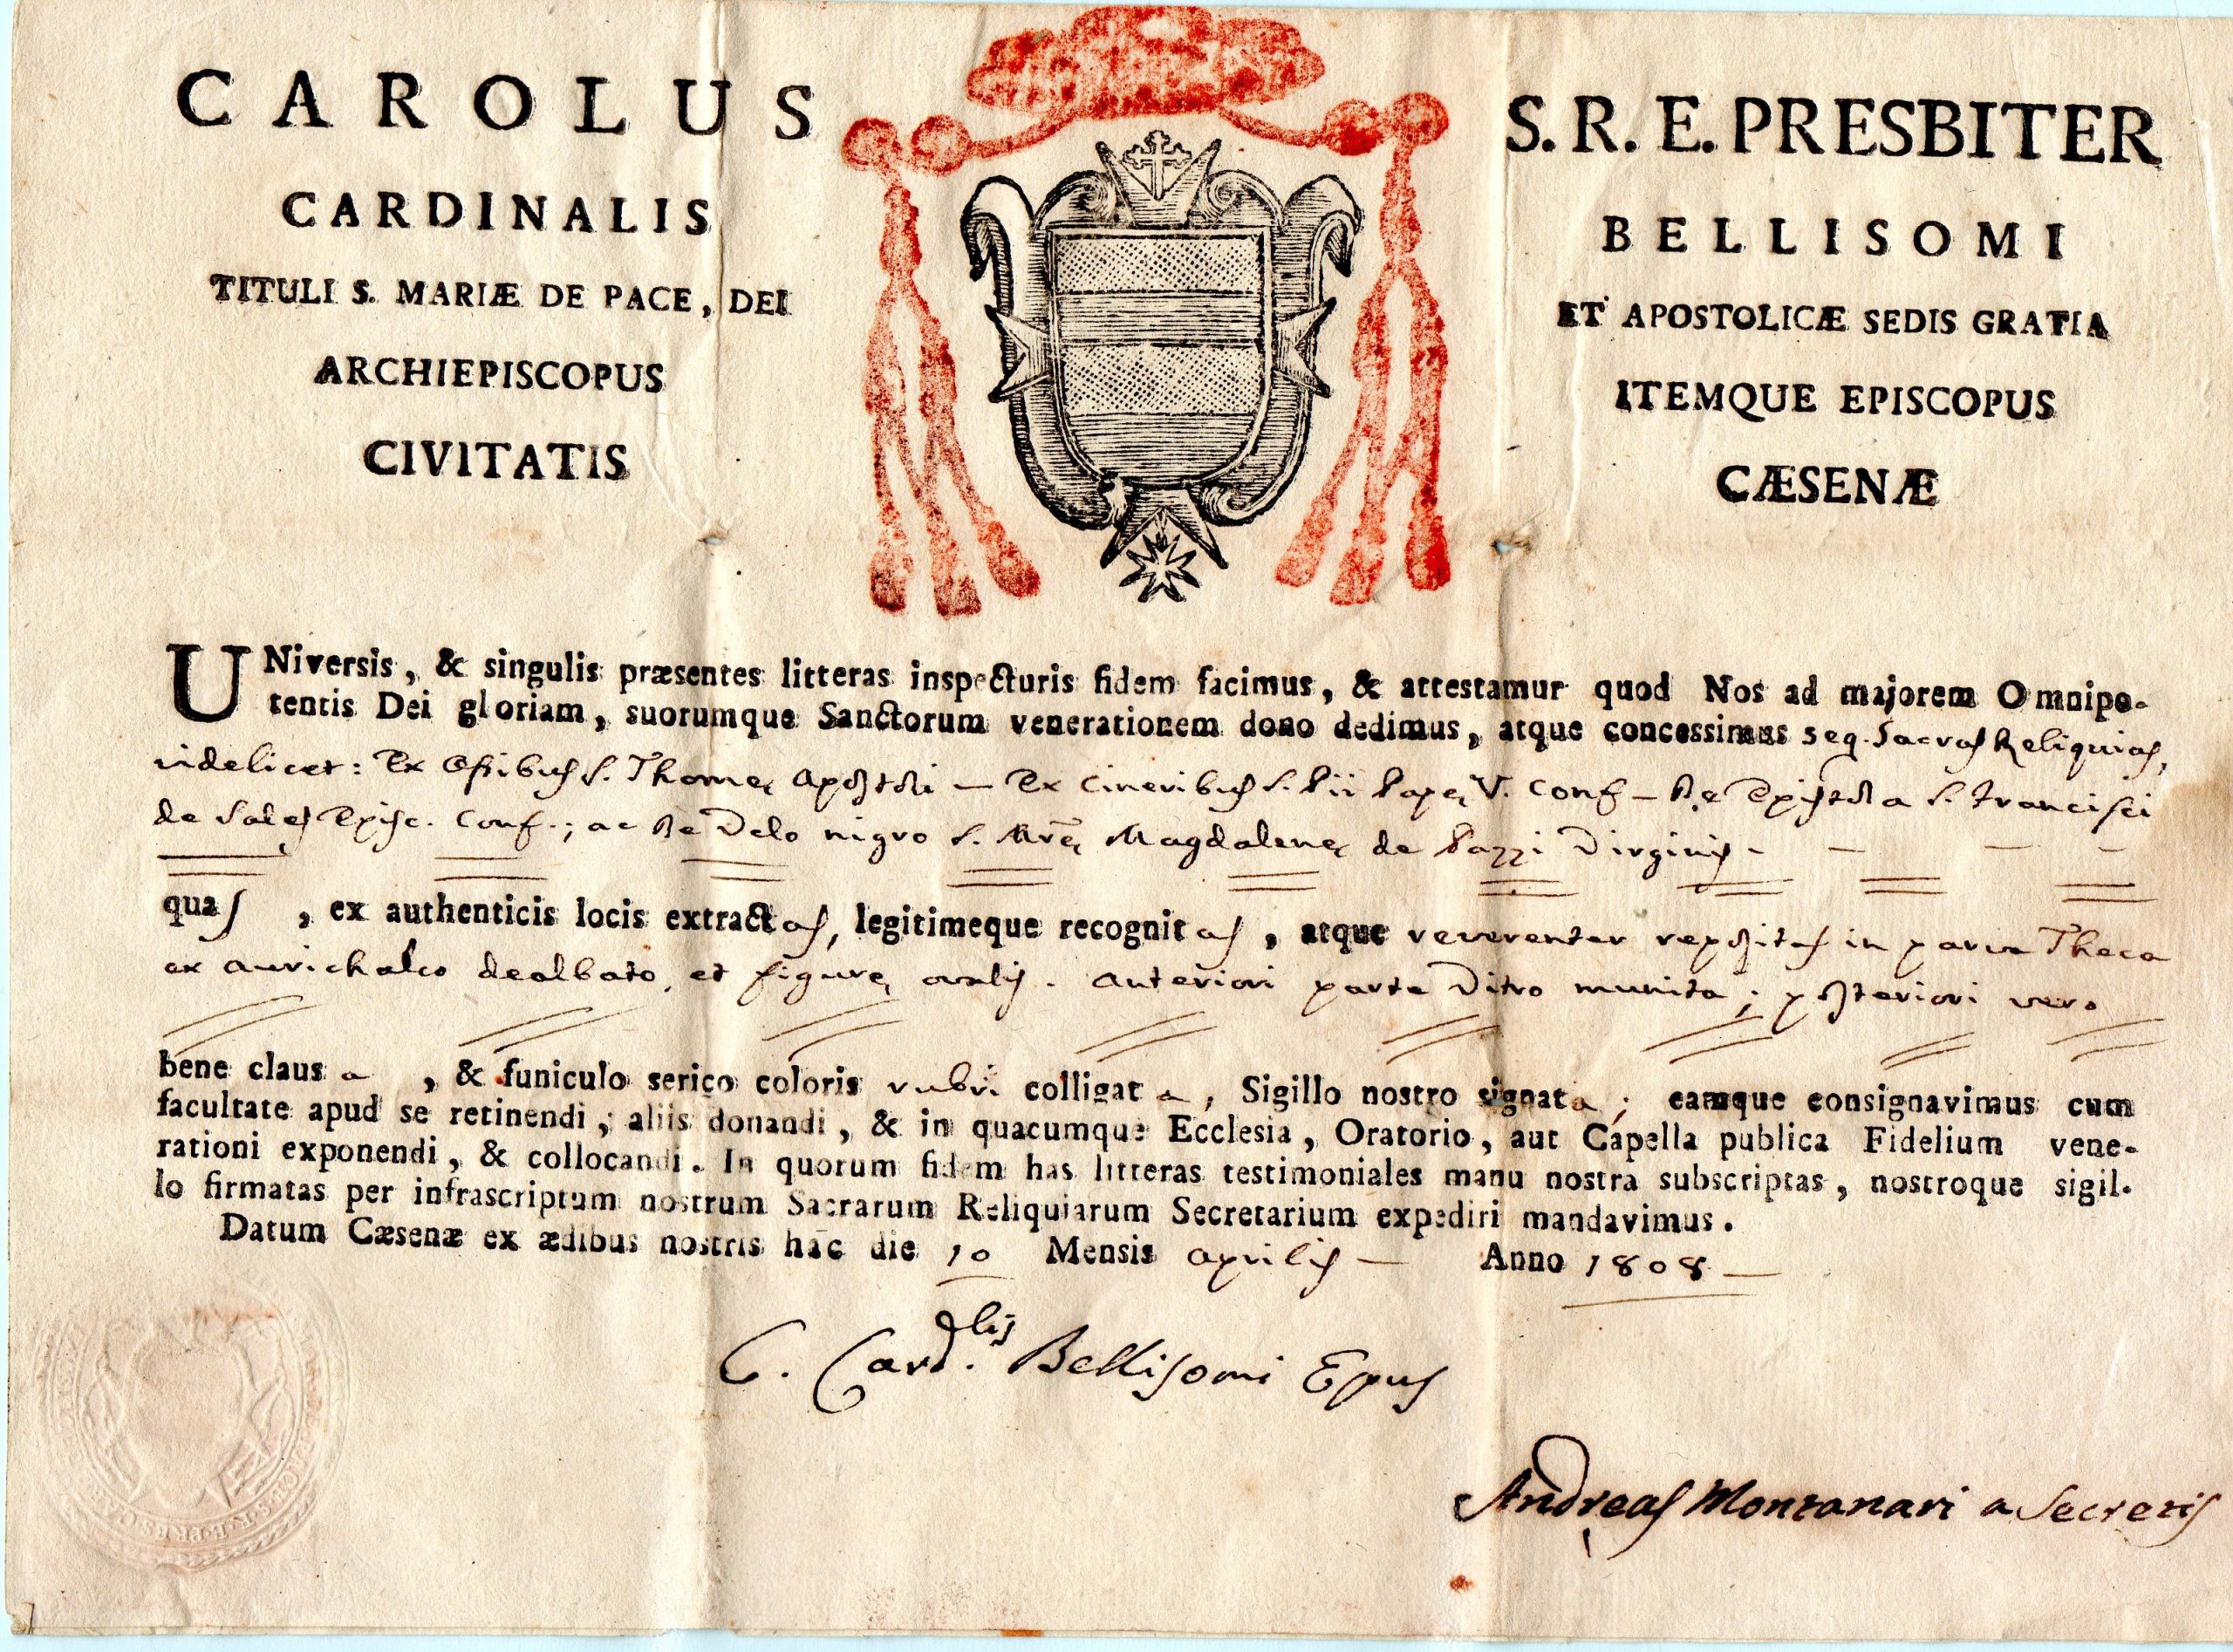 CAROLUS S.R.E. PRESBITER
CARDINALIS BELLISOMI
TITULI S. MARIÆ DE PACE, DEI ET APOSTOLICÆ SEDIS GRATIA
ARCHIEPISCOPUS ITEMQUE EPISCOPUS
CIVITATIS CÆSENÆ
UNiversis, & singulis præsentes litteras inspecturis fidem facimus, & attestamur quod Nos ad majorem Omnipo-
tentis Dei gloriam, suorumque Sanctorum venerationem dono dedimus, atque concessimus seq. Sacras Reliquias,
videlicet: Ex Ossibus S. Thomæ Apostoli — Ex Cineribus S. Pii Papæ V. Conf — De Epistola S. Francisci
de Sales Episc. Conf.; ac de Velo nigro S. Mræ Magdalenæ de Pazzi Virginis - — — -
quas, ex authenticis locis extractas, legitimeque recognitas, atque reverenter repositas in parva Theca
ex aurichalco dealbato, et figuræ ovalis. anteriori parte Vitro munita; posteriori vero
bene clausa, & funiculo serico coloris rubri colligata, Sigillo nostro signata; eamque consignavimus cum
facultate apud se retinendi, aliis donandi, & in quacumque Ecclesia, Oratorio, aut Capella publica Fidelium vene-
rationi exponendi, & collocandi. In quorum fidem has litteras testimoniales manu nostra subscriptas, nostroque sigil-
lo firmatas per infrascriptum nostrum Sacrarum Reliquiarum Secretarium expediri mandavimus.
Datum Cæsenæ ex ædibus nostris hac die 10 Mensis Aprilis — Anno 1808 —
C. Card.lis Bellisomi Epus
Andreas Montanari a Secretis